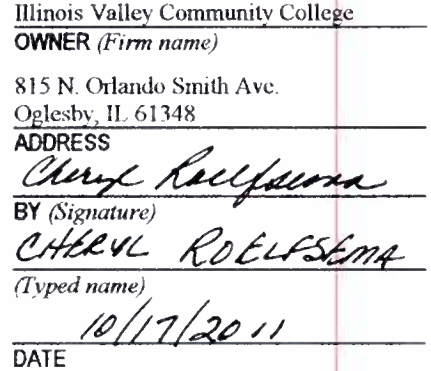 Illinois Valley Community College
OWNER (Firm name)
815 N. Orlando Smith Ave.
Oglesby, IL 61348
ADDRESS
Cheryl Roelfsema
BY (Signature)
CHERYL ROELFSEMA
(Typed name)
10/17/2011
DATE